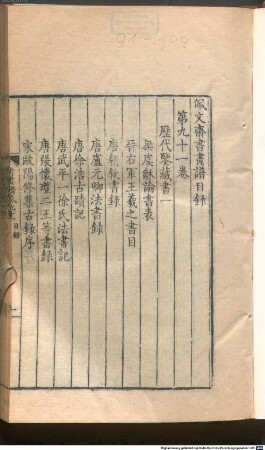 佩文齋書畫譜目錄
第九十一卷
歷代鑒藏書一
梁虞龢論書表
晉右軍王羲之書目
唐朝敘書錄
唐盧元卿法書錄
唐徐浩古蹟記
唐武平一徐氏法書記
唐張懷瓘二王等書錄
宋歐陽修集古錄序
目錄